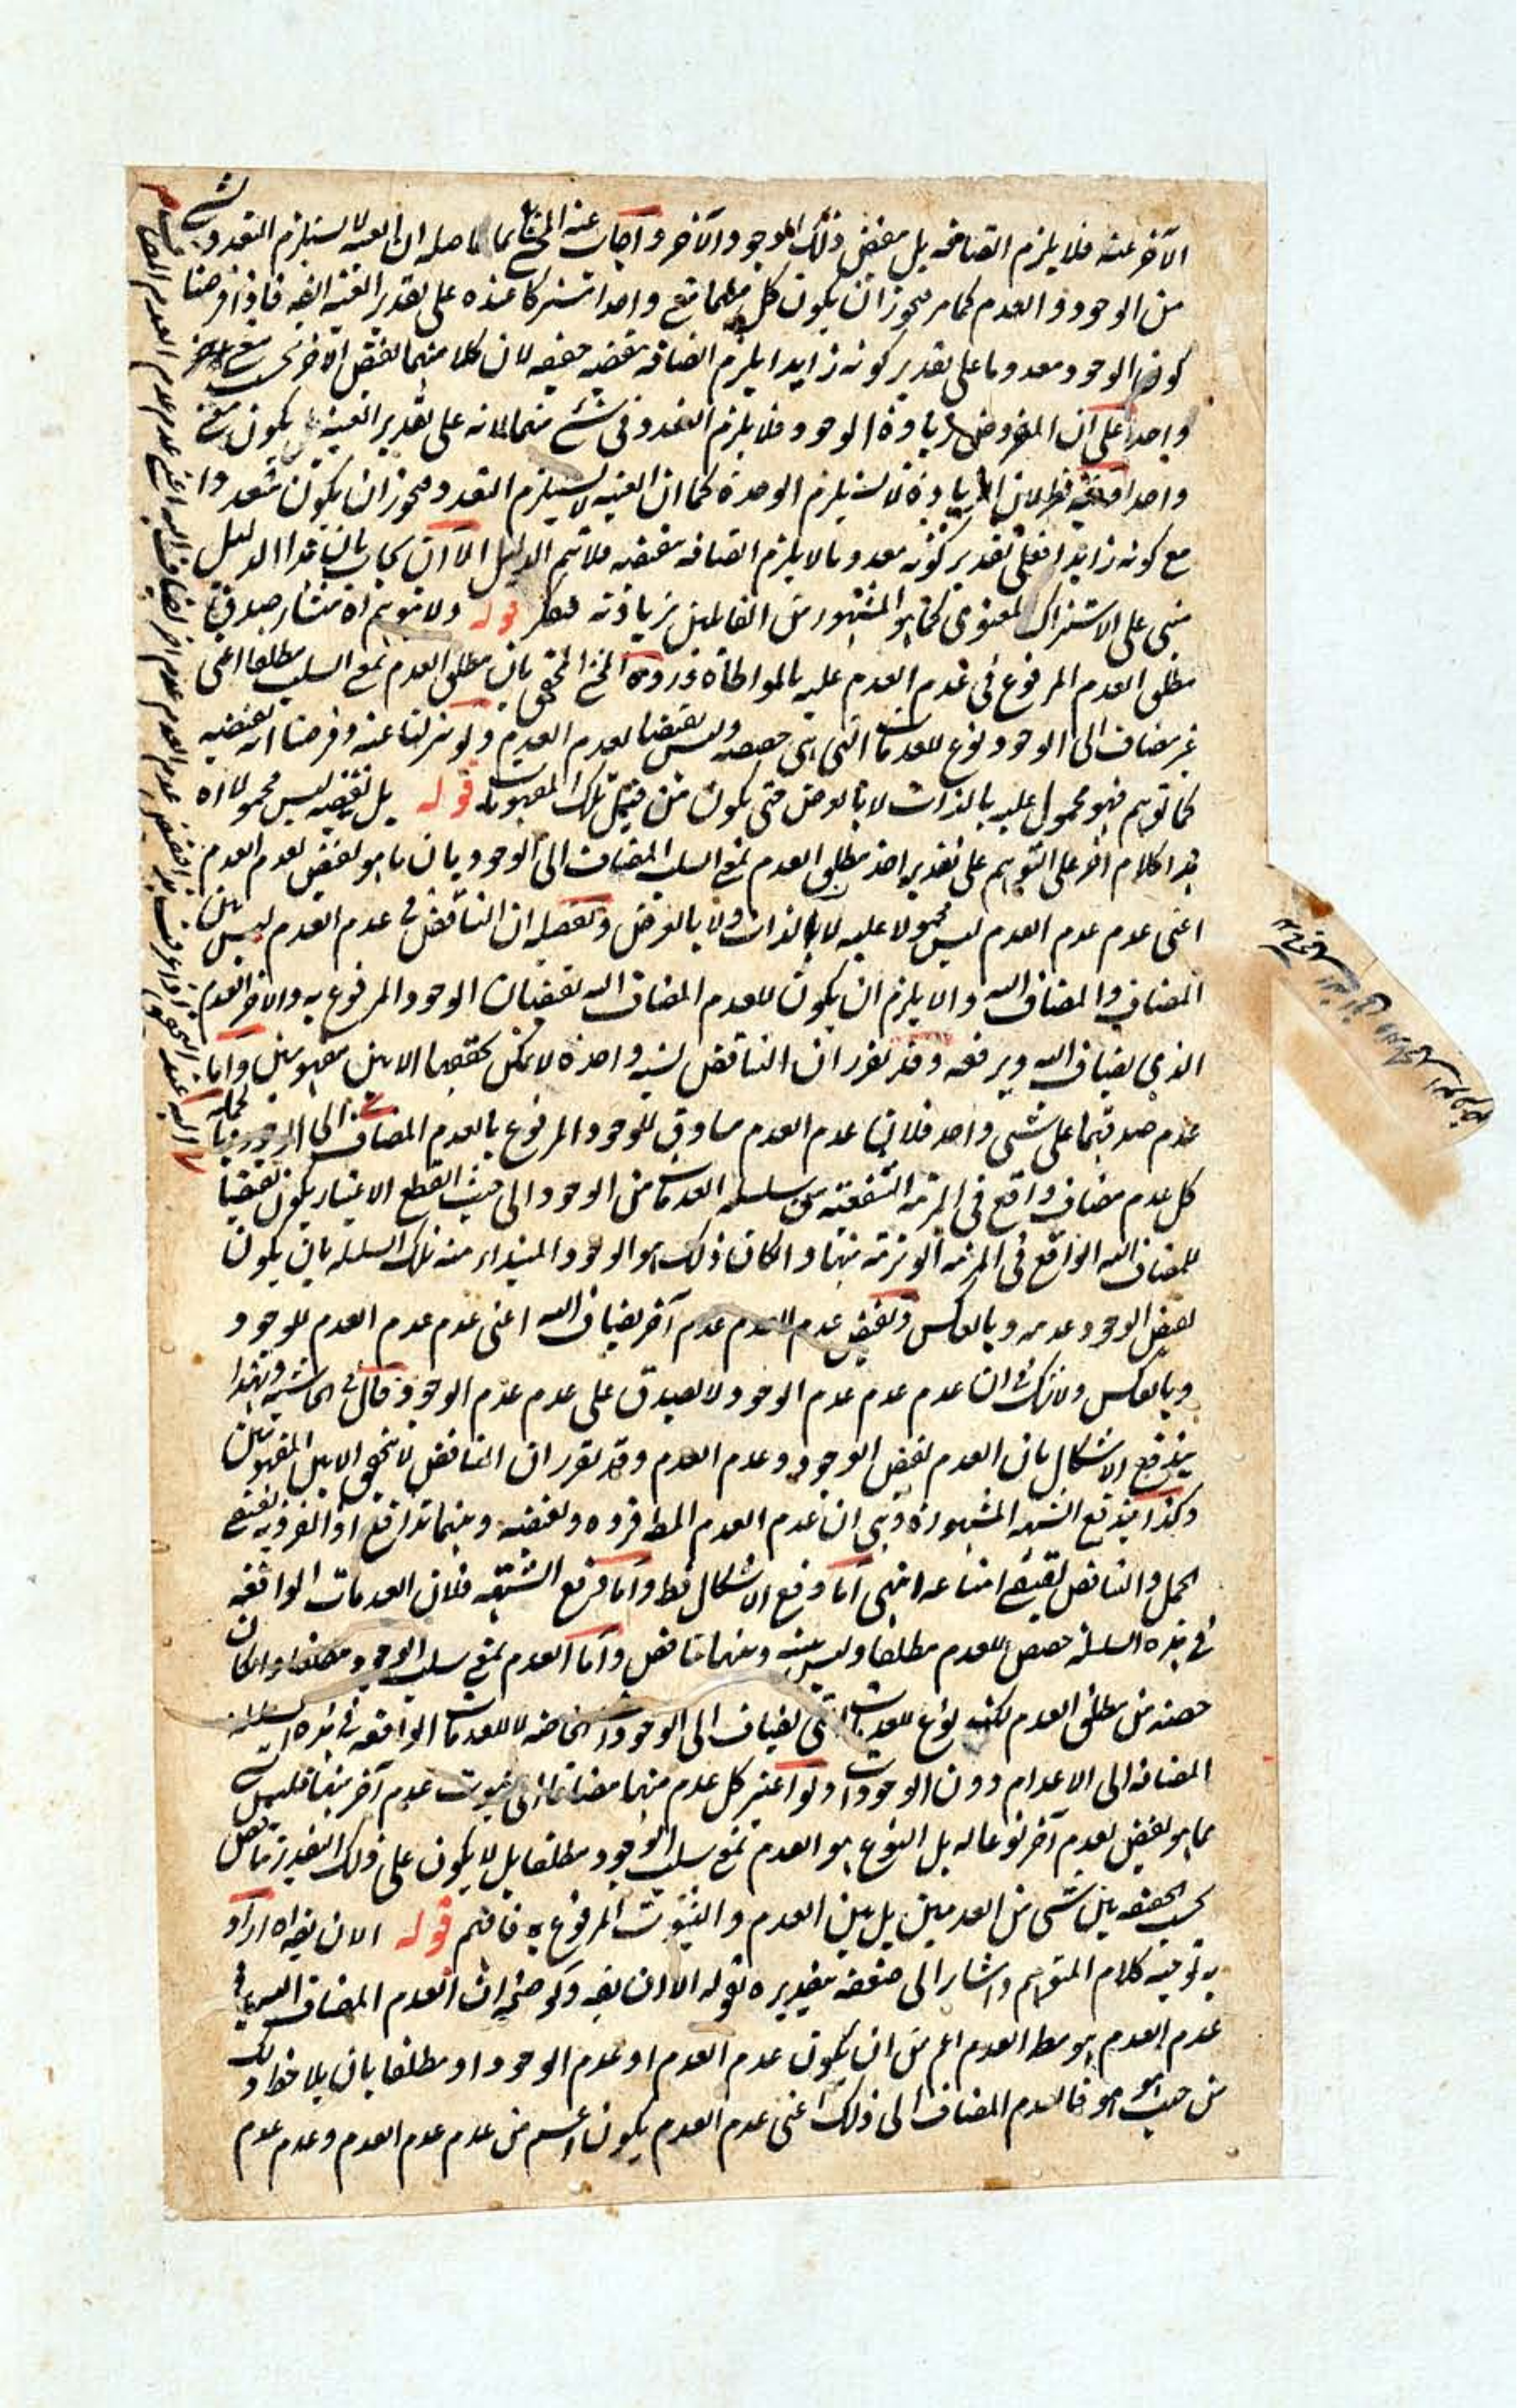 الآخر عنه فلا يلزم اتصافه بل نقيض ذلك الموجود والآخر وأجاب عنه المحشي بما حاصله ان العينية لا يستلزم التعدد
من الوجود والعدم كما مر فيجوز ان يكون كل منهما مع واحدا مشتركا عنده على تقدير العينية فاذا فرضنا
كون الوجود معدوما على تقدير كونه زايدا يلزم اتصافه بنقيضه حقيقة لان كلا منهما نقيض الآخر بحسب معنى
واحد على ان المفروض زيادة الوجود فلا يلزم التعدد في شئ منهما لانه على تقدير العينية يكون معنى
واحدا فيه نظر لان الزيادة لا يستلزم الوحدة كما ان العينية لا يستلزم التعدد فيجوز ان يكون متعددا
مع كونه زايدا فعلى تقدير كونه معدوما لا يلزم اتصافه بنقيضه فلا يتم الدليل الا ان يجاب بان هذا الدليل
مبني على الاشتراك المعنوي كما هو المشهور من القائلين بزيادته فتفكر قوله ولا يتوهم ان منشأ صدق
مطلق العدم المرفوع في عدم العدم عليه بالمواطاة فرده المحشي المحقق بان مطلق العدم بمعنى السلب مطلقا اعني
غير مضاف الى الوجود نوع للعدمات التي هي حصصه وليس نقيضا لعدم العدم ولو تنزلنا عنه وفرضنا انه نقيضه
كما توهم فهو محمول عليه بالذات لا بالعرض حتى يكون من قبيل تلك المفهومات قوله بل نقيضه ليس محمولا اه
هذا كلام آخر على التوهم على تقدير اخذ مطلق العدم بمعنى السلب المضاف الى الوجود بان ما هو نقيض لعدم العدم
اعني عدم عدم العدم ليس محمولا عليه لا بالذات ولا بالعرض وتفصيله ان التناقض في عدم العدم ليس بين
المضاف والمضاف اليه والا يلزم ان يكون للعدم المضاف اليه نقيضان الوجود المرفوع به والآخر العدم
الذي يضاف اليه ويرفعه وقد تقرر ان التناقض نسبة واحدة لا يمكن تحققها الا بين مفهومين واما
عدم صدقهما على شئ واحد فلان عدم العدم مساوق للوجود المرفوع بالعدم المضاف الى الوجود وبالجملة
كل عدم مضاف واقع في المرتبة الشفعية من سلسلة العدمات من الوجود الى حيث انقطع الاعتبار يكون نقيضا
للمضاف اليه الواقع في المرتبة الوترية منها وان كان ذلك هو الوجود المبتداء منه تلك السلسلة بان يكون
نقيض الوجود عدمه وبالعكس ونقيض عدم العدم عدم آخر يضاف اليه اعني عدم عدم العدم للوجود
وبالعكس ولا شك في ان عدم عدم عدم الوجود لا يصدق على عدم عدم الوجود قال في الحاشية وبهذا
يندفع الاشكال بان العدم نقيض الوجود وعدم العدم وقد تقرر ان التناقض لا يتحقق الا بين المفهومين
وكذا يندفع الشبهة المشهورة وهي ان عدم العدم المط فرده ونقيضه وبينهما تدافع اذ الفردية تقتضي
الحمل والتناقض يقتضي امتناعه انتهى اما دفع الاشكال فظ واما دفع الشبهة فلان العدمات الواقعة
في هذه السلسلة حصص للعدم مطلقا وليس بينه وبينها تناقض واما العدم بمعنى سلب الوجود مطلقا وان كان
حصته من مطلق العدم لكنه نوع للعدمات التي تضاف الى الوجودات الخاصة لا للعدمات الواقعة في هذه السلسلة
المضافة الى الاعدام دون الوجودات ولو اعتبر كل عدم منها مضافا الى ثبوت عدم آخر منها فليس
ما هو نقيض لعدم آخر نوعا له بل النوع هو العدم بمعنى سلب الوجود مطلقا بل لا يكون على ذلك التقدير تناقض
بحسب الحقيقة بين شئ من العدمين بل بين العدم والثبوت المرفوع به فافهم قوله الا ان يقراه اراد
به توجيه كلام المتوهم واشار الى ضعفه بتقديره بقوله الا ان يقه وتوضيحه ان العدم المضاف اليه في
عدم العدم هو مط العدم اعم من ان يكون عدم العدم او عدم الوجود او مطلقا بان يلاحظ ذلك
من حيث هو هو فالعدم المضاف الى ذلك اعني عدم العدم يكون اعم من عدم عدم العدم وعدم عدم